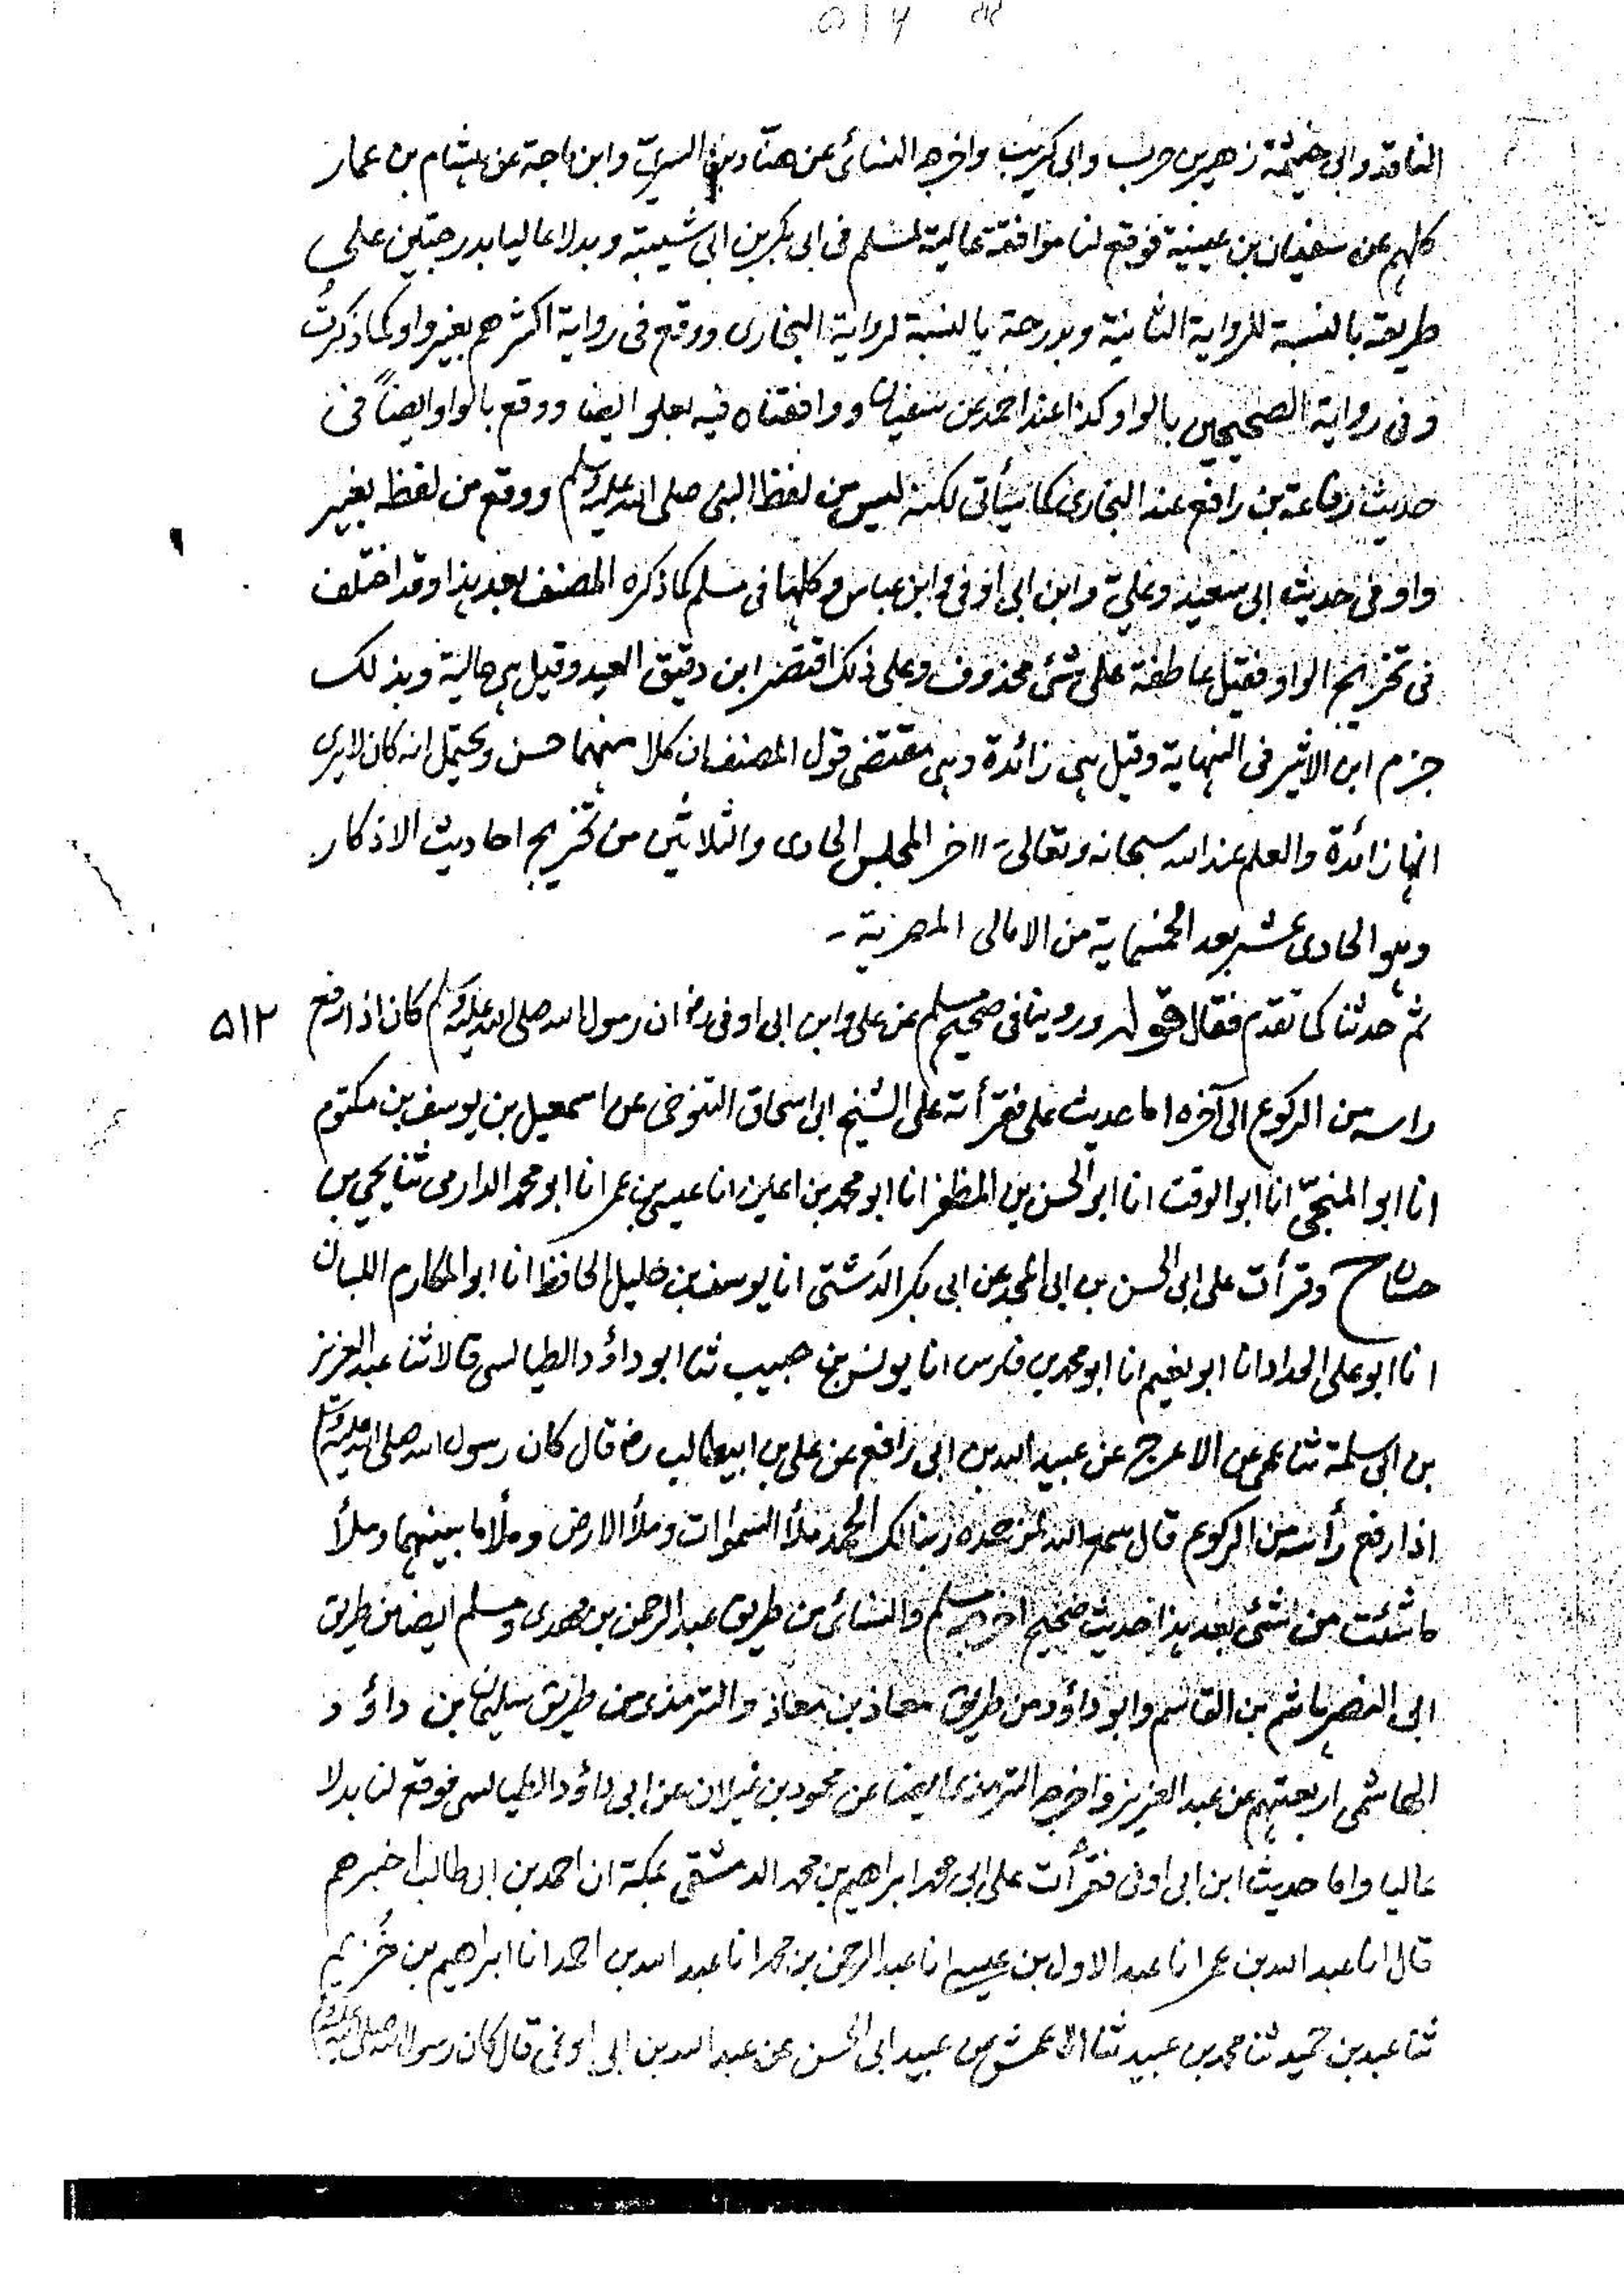 الناقد وابی خیثمة زهیر بن حرب وابی کریب واخرجه النسائی عن هنّاد بن السریّ وابن ماجة عن هشام بن عمار
کلهم عن سفیان بن عیینة فوقع لنا موافقة عالیة لمسلم فی ابی بکر بن ابی شیبة وبدلا عالیا بدرجتین علی
طریقه بالنسبة للروایة الثانیة وبدرجة بالنسبة لروایة البخاری ووقع فی روایة اکثرهم بغیر واو کما ذکرتُ
وفی روایة الصحیحین بالواو کذا عند احمد عن سفیان ووافقناه فیه بعلو ایضا ووقع بالواو ایضاً فی
حدیث رفاعة بن رافع عند البخاری کما سیأتی لکنه لیس من لفظ النبی صلی الله علیه وسلم ووقع من لفظه بغیر
واو فی حدیث ابی سعید وعلیّ وابن ابی اوفی وابن عباس وکلها فی مسلم کما ذکره المصنف بعد هذا وقد اختلف
فی تخریج الواو فقیل عاطفة علی شئ محذوف وعلی ذلک اقتصر ابن دقیق العید وقیل هی حالیة وبذلک
جزم ابن الاثیر فی النهایة وقیل هی زائدة وهی مقتضی قول المصنف ان کلا منهما حسن ویحتمل انه کان لا یری
انها زائدة والعلم عند الله سبحانه وتعالی ۔ آخر المجلس الحادی والثلاثین من تخریج احادیث الاذکار
وهو الحادی عشر بعد الخمسمایة من الامالی المصریة ۔
ثم حدثنا کما تقدم فقال قوله وروینا فی صحیح مسلم عن علی وابن ابی اوفی رض ان رسول الله صلی الله علیه وسلم کان اذا رفع ۵۱۲
راسه من الرکوع الی آخره اما حدیث علی فقرأته علی الشیخ ابی اسحاق التنوخی عن اسمعیل بن یوسف بن مکتوم
انا ابو المنجیّ انا ابو الوقت انا ابو الحسن بن المظفر انا ابو محمد بن اعین انا عیسی بن عمر انا ابو محمد الدارمی ثنا یحیی بن
حسان ح وقرأت علی ابی الحسن بن ابی المجد عن ابی بکر الدَشتی انا یوسف بن خلیل الحافظ انا ابو المکارم اللبان
انا ابو علی الحداد انا ابو نعیم انا ابو محمد بن فارس انا یونس بن حبیب ثنا ابو داؤد الطیالسی قالا ثنا عبد العزیز
بن ابی سلمة ثنا عمی عن الاعرج عن عبید الله بن ابی رافع عن علی بن ابیطالب رض قال کان رسول الله صلی الله علیه وسلم
اذا رفع رأسه من الرکوع قال سمع الله لمن حمده ربنا لک الحمد ملأ السموات وملأ الارض وملأ ما بینهما وملأ
ما شئت من شئ بعد هذا حدیث صحیح اخرجه مسلم والنسائی من طریق عبد الرحمن بن مهدی ومسلم ایضا من طریق
ابی النضر هاشم بن القاسم وابو داؤد من طریق معاذ بن معاذ والترمذی من طریق سلیمان بن داؤد
الهاشمی اربعتهم عن عبد العزیز واخرجه الترمذی ایضا عن محمود بن غیلان عن ابی داؤد الطیالسی فوقع لنا بدلا
عالیا واما حدیث ابن ابی اوفی فقرأت علی ابی محمد ابراهیم بن محمد الدمشقی بمکة ان احمد بن ابی طالب اخبرهم
قال انا عبد الله بن عمر انا عبد الاول بن عیسی انا عبد الرحمن بن محمد انا عبد الله بن احمد انا ابراهیم بن خُزیم
ثنا عبد بن حمید ثنا محمد بن عبید ثنا الاعمش عن عبید ابی الحسن عن عبد الله بن ابی اوفی قال کان رسول الله صلی الله علیه وسلم